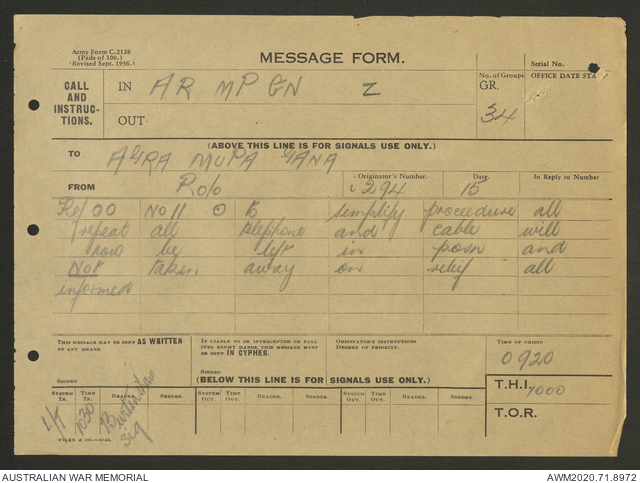 Army Form C.2128
(Pads of 100.)
(Revised Sept. 1936.)
MESSAGE FORM.
Serial No.
CALL AND INSTRUC- TIONS.
IN AR MP GN Z
No. of Groups GR. 34
OFFICE DATE STA
OUT
(ABOVE THIS LINE IS FOR SIGNALS USE ONLY.)
TO AGRA MUPA GANA
FROM Originator's Number. Date. In Reply to Number
294 15
Ref OO No 11 simplify proceedure all
repeat all telephone and cable will
now be left in posn and
Not taken away on relief all
informed
THIS MESSAGE MAY BE SENT AS WRITTEN BY ANY MEANS.
IF LIABLE TO BE INTERCEPTED OR FALL INTO ENEMY HANDS, THIS MESSAGE MUST BE SENT IN CYPHER.
ORIGINATOR'S INSTRUCTIONS DEGREE OF PRIORITY.
TIME OF ORIGIN
0920
SIGNED SIGNED
(BELOW THIS LINE IS FOR SIGNALS USE ONLY.)
T.H.I. 1000
SYSTEM IN. TIME IN. READER. SENDER. SYSTEM OUT. TIME OUT. READER. SENDER. SYSTEM OUT. TIME OUT. READER. SENDER.
T.O.R.
1030
Sig
AUSTRALIAN WAR MEMORIAL AWM2020.71.8972